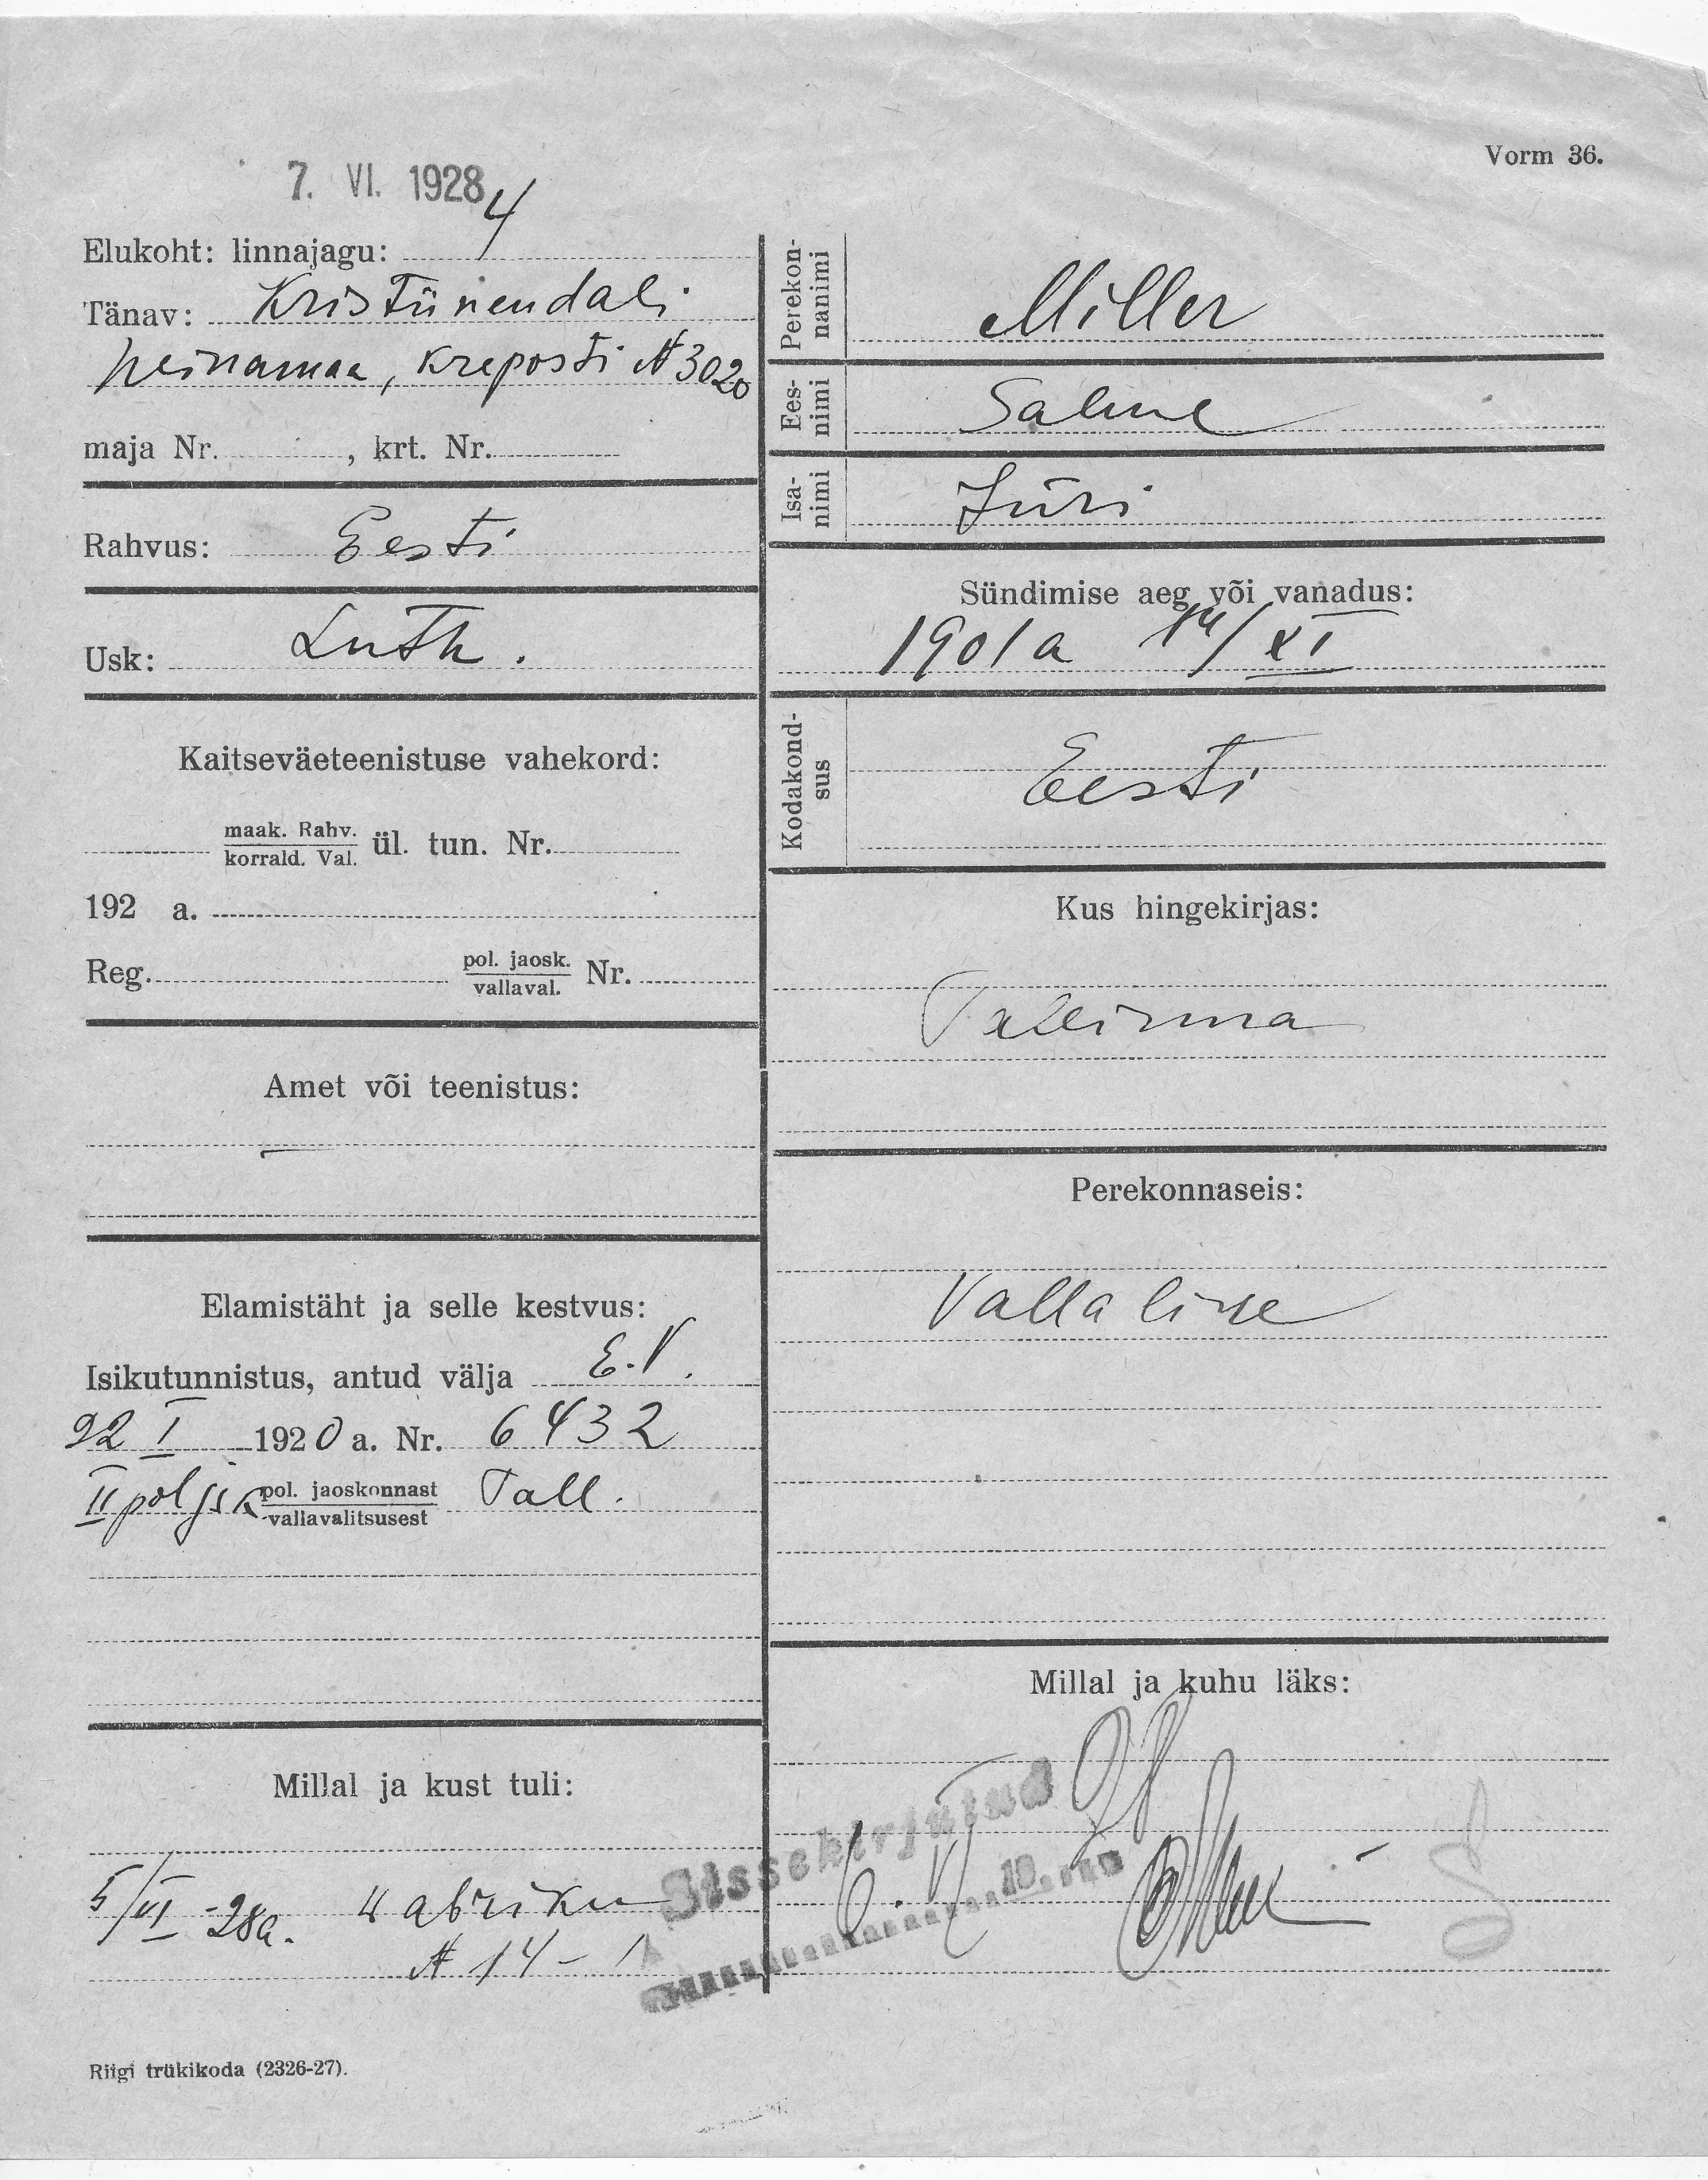 Vorm 36.
7. VI. 1928
Elukoht: linnajagu: 4
Tänav: Kristiinendali
heinamaa, kreposti № 3020
maja Nr. , krt. Nr.
Rahvus: Eesti
Usk: Luth.
Kaitseväeteenistuse vahekord:
maak. Rahv.
korrald. Val. ül. tun. Nr.
192 a.
Reg. pol. jaosk.
vallaval. Nr.
Amet või teenistus:
—
Elamistäht ja selle kestvus:
Isikutunnistus, antud välja E.V.
22 I 1920 a. Nr. 6432
II pol jsk pol. jaoskonnast Tall.
vallavalitsusest
Millal ja kust tuli:
5/VI -28a. Wabriku
№ 14 - 1
Riigi trükikoda (2326-27).
Perekon-
nanimi
Miller
Ees-
nimi
Salme
Isa-
nimi
Jüri
Sündimise aeg või vanadus:
1901 a 14/XI
Kodakond-
sus
Eesti
Kus hingekirjas:
Tallinna
Perekonnaseis:
Vallaline
Millal ja kuhu läks:
Sissekirjutud
19